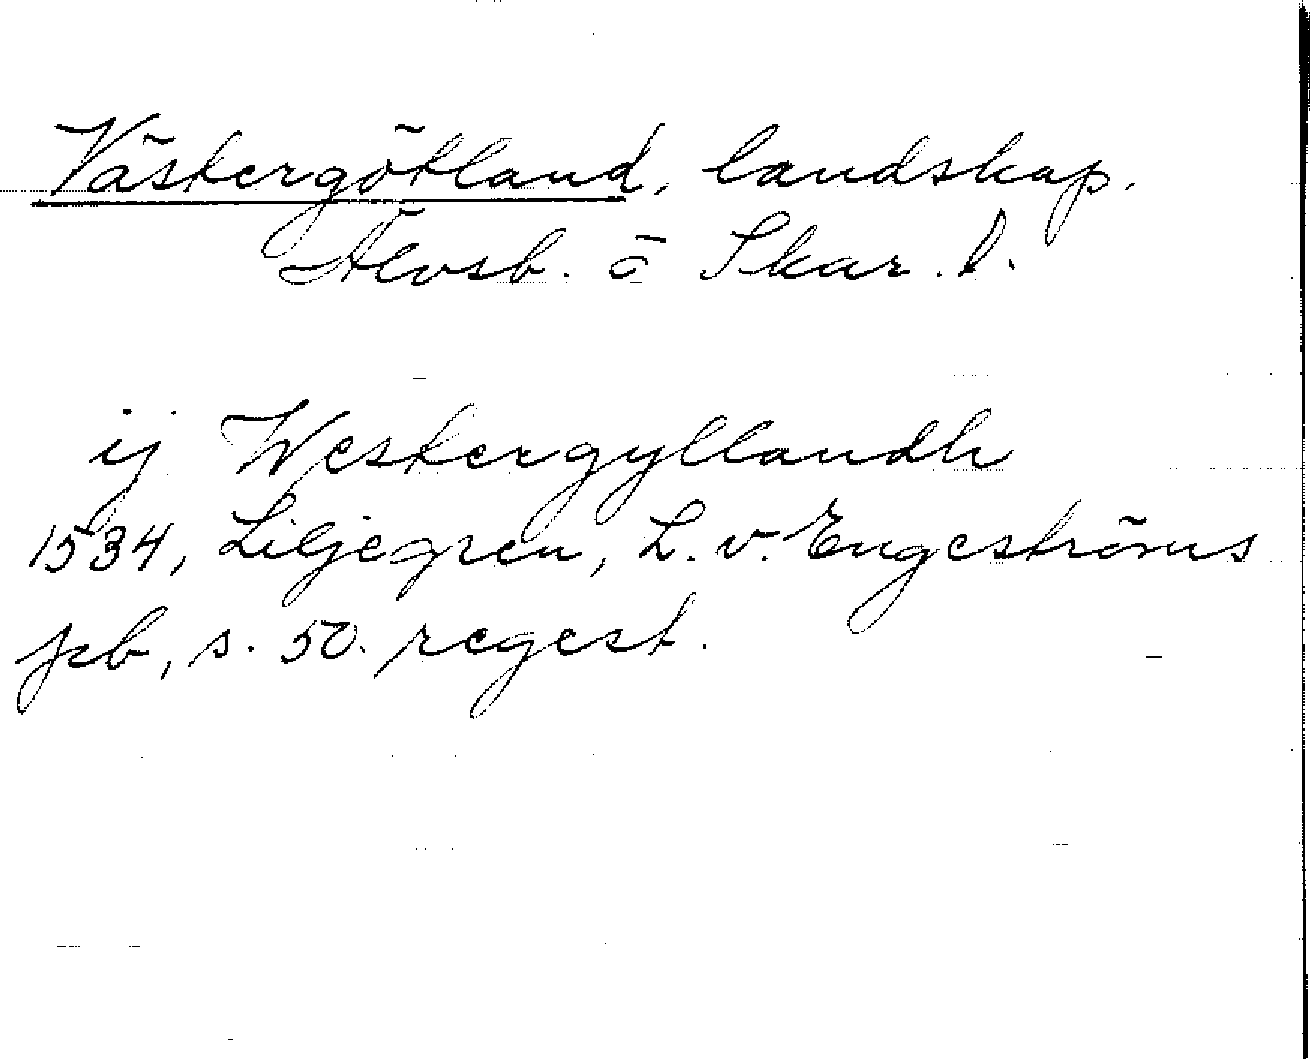 Västergötland, landskap.
Älvsb. o Skar. l.
ij Westergyllandh
1534, Liljegren, L. v. Engeströms
pb, s. 50. regest.